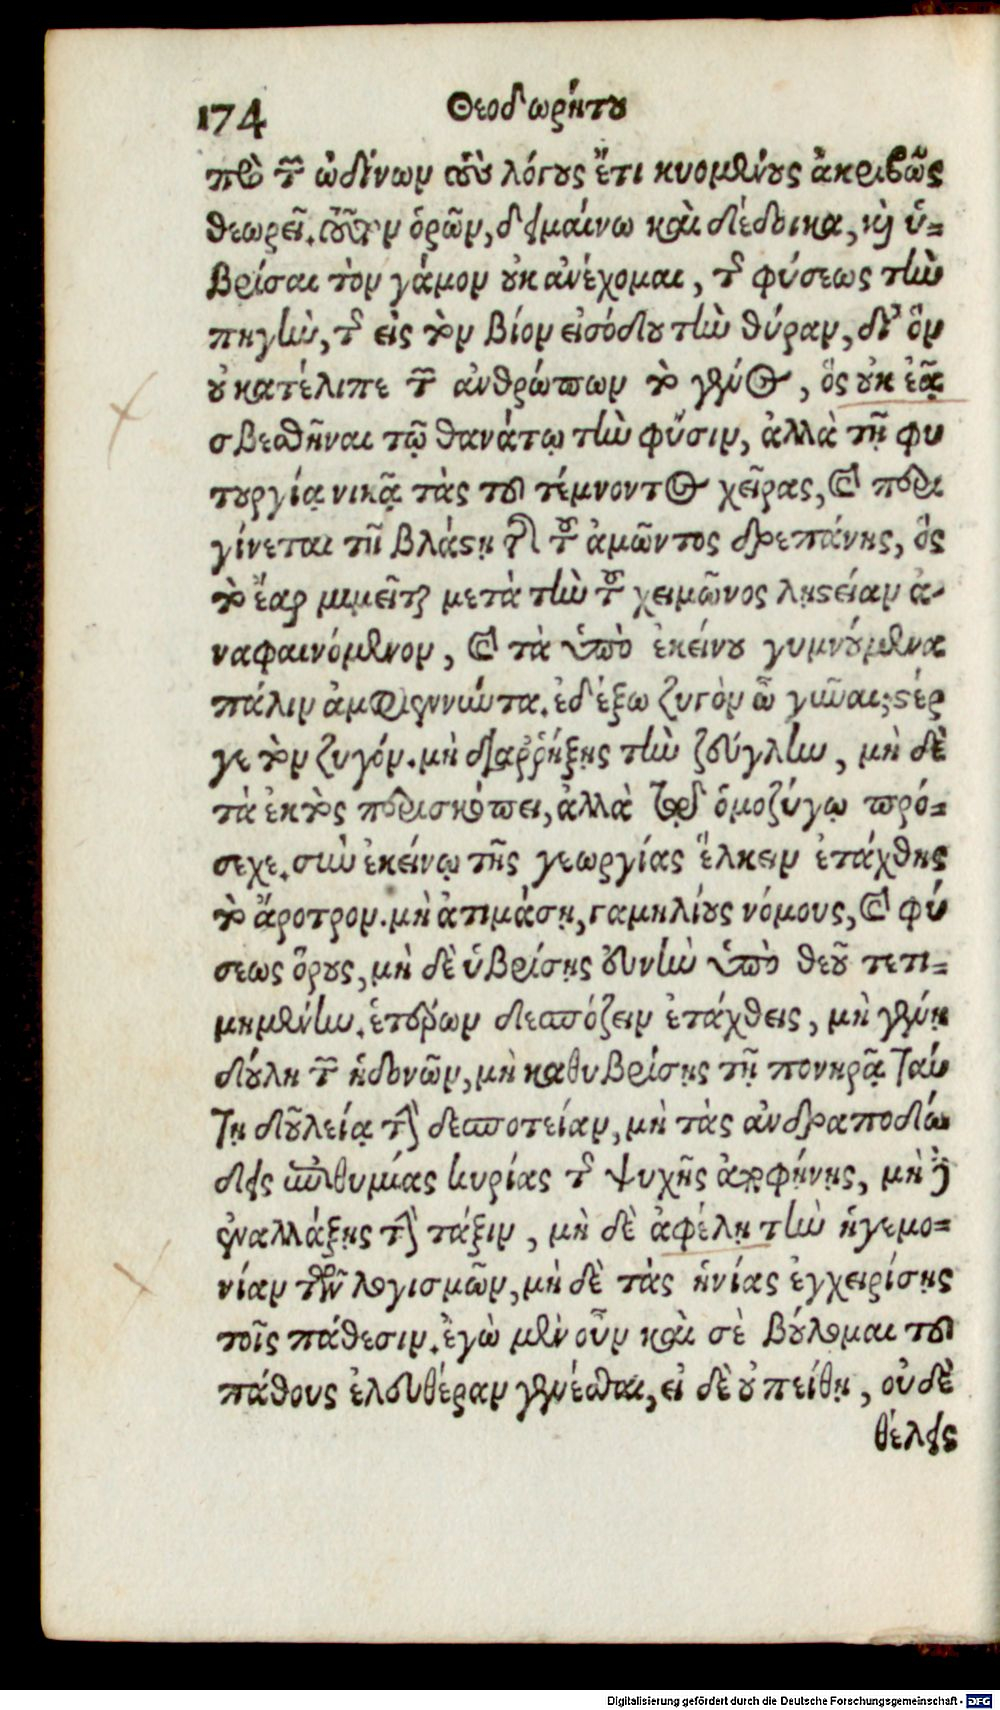 174 Θεοδωρήτου
πρὸ τῶν ὠδίνων τοὺς λόγους ἔτι κυομένους ἀκριβῶς
θεωρεῖ. τοῦτον ὁρῶν, δειμαίνω καὶ δέδοικα, καὶ ὑ-
βρίσαι τὸν γάμον οὐκ ἀνέχομαι, τῆς φύσεως τὴν
πηγὴν, τῆς εἰς τὸν βίον εἰσόδου τὴν θύραν, δι' ὃν
οὐ κατέλιπε τῶν ἀνθρώπων τὸ γένος, ὃς οὐκ ἐᾷ
σβεσθῆναι τῷ θανάτῳ τὴν φύσιν, ἀλλὰ τῇ φυ
τουργίᾳ νικᾷ τὰς τοῦ τέμνοντος χεῖρας, καὶ περι
γίνεται τῇ βλάστῃ τῆς τοῦ ἀμῶντος δρεπάνης, ὃς
τὸ ἔαρ μιμεῖται μετὰ τὴν τοῦ χειμῶνος λῃστείαν ἀ-
ναφαινόμενον, καὶ τὰ ὑπὸ ἐκείνου γυμνούμενα
πάλιν ἀμφιεννύντα. ἐδέξω ζυγὸν ὦ γύναι; στέρ
γε τὸν ζυγόν. μὴ διαῤῥήξῃς τὴν ζεύγλην, μὴ δὲ
τὰ ἐκτὸς περισκόπει, ἀλλὰ τῷ ὁμοζύγῳ πρό-
σεχε. σὺν ἐκείνῳ τῆς γεωργίας ἕλκειν ἐτάχθης
τὸ ἄροτρον. μὴ ἀτιμάσῃς γαμηλίους νόμους, καὶ φύ
σεως ὅρους, μὴ δὲ ὑβρίσῃς εὐνὴν ὑπὸ θεοῦ τετι-
μημένην. ἑτέρων δεσπόζειν ἐτάχθης, μὴ γένῃ
δούλη τῶν ἡδονῶν, μὴ καθυβρίσῃς τῇ πονηρᾷ ταύ
τῃ δουλείᾳ τὴν δεσποτείαν, μὴ τὰς ἀνδραποδώ
δεις ἐπιθυμίας κυρίας τῆς ψυχῆς ἀποφήνῃς, μὴ
ἐναλλάξῃς τὴν τάξιν, μὴ δὲ ἀφέλῃ τὴν ἡγεμο-
νίαν τῶν λογισμῶν, μὴ δὲ τὰς ἡνίας ἐγχειρίσῃς
τοῖς πάθεσιν. ἐγὼ μὲν οὖν καὶ σὲ βούλομαι τοῦ
πάθους ἐλευθέραν γενέσθαι, εἰ δὲ οὐ πείθῃ, οὐδὲ
θέλεις
Digitalisierung gefördert durch die Deutsche Forschungsgemeinschaft - DFG